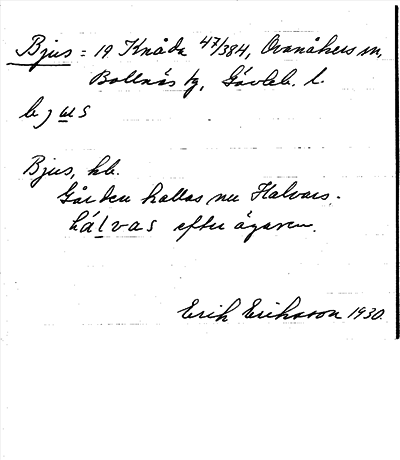 Bjus = 19 Knåda 47/384, Ovanåkers sn,
Bollnäs tg, Gävleb. l.
bjus
Bjus, hb.
Gården kallas nu Halvars.
hálvas efter ägaren.
Erik Eriksson 1930.